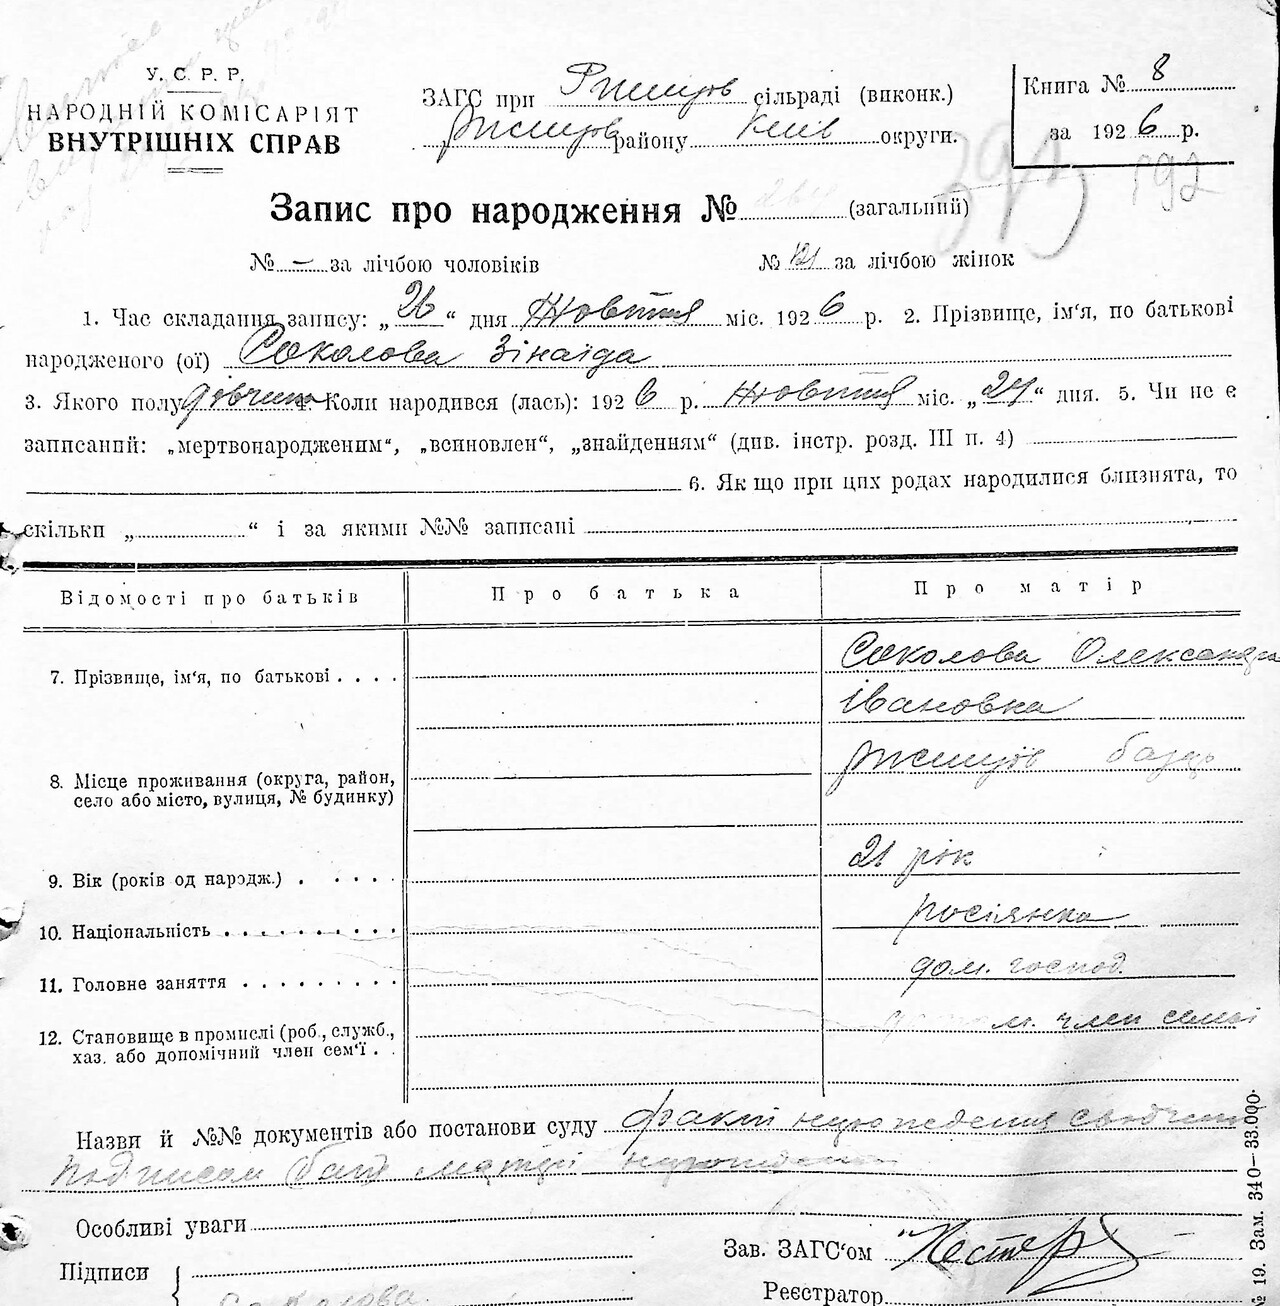 У. С. Р. Р.
НАРОДНІЙ КОМІСАРІЯТ
ВНУТРІШНІХ СПРАВ
ЗАГС при Ржищов сільраді (виконк.)
Ржищов району Київ округи.
Книга № 8
за 1926 р.
392
592
Запис про народження № (загальний)
№ – за лічбою чоловіків № 121 за лічбою жінок
1. Час складання запису: „26“ дня Жовтня міс. 1926 р. 2. Прізвище, ім'я, по батькові
народженого (ої) Соколова Зінаїда
3. Якого полу дівчина 4. Коли народився (лась): 1926 р. Жовтня міс. „24“ дня. 5. Чи не є
записаний: „мертвонародженим“, „всиновлен“, „знайденням“ (див. інстр. розд. III п. 4)
6. Як що при цих родах народилися близнята, то
скільки „ “ і за якими №№ записані
Відомості про батьків Про батька Про матір
7. Прізвище, ім'я, по батькові . . . . Соколова Олександра
Івановна
8. Місце проживання (округа, район, Ржищів
село або місто, вулиця, № будинку)
9. Вік (років од народж.) . . . . . 21 рік
10. Національність . . . . . . . . . . росіянка
11. Головне заняття . . . . . . . . . дом. господ.
12. Становище в промислі (роб., служб., член семьі
хаз. або допомічний член сем'ї . .
Назви й №№ документів або постанови суду факт
подписом матері
Особливі уваги
Зав. ЗАГС'ом
Підписи
Соколова
Реєстратор
№ 19. Зам. 340—33.000.